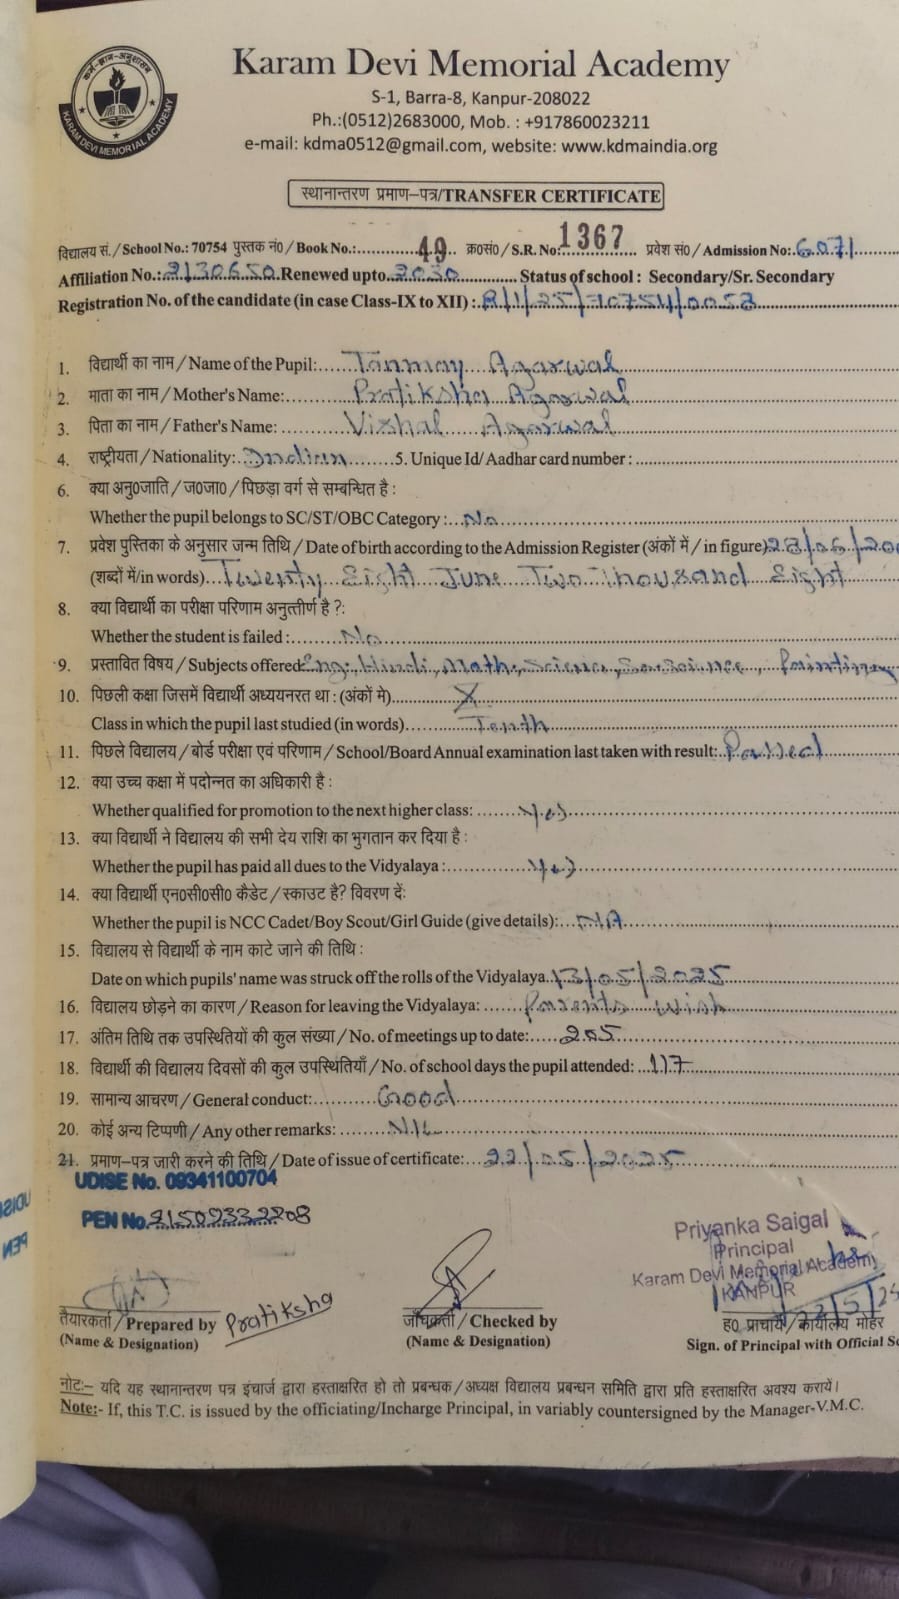 कर्म-ज्ञान-अनुशासन
KARAM DEVI MEMORIAL ACADEMY
Karam Devi Memorial Academy
S-1, Barra-8, Kanpur-208022
Ph.:(0512)2683000, Mob. : +917860023211
e-mail: kdma0512@gmail.com, website: www.kdmaindia.org
स्थानान्तरण प्रमाण-पत्र/TRANSFER CERTIFICATE
विद्यालय सं./School No.: 70754 पुस्तक नं०/Book No.: 49 क्र०सं०/S.R. No: 1367 प्रवेश सं०/Admission No: 6071
Affiliation No.: 2130650 Renewed upto: 2030 Status of school : Secondary/Sr. Secondary
Registration No. of the candidate (in case Class-IX to XII) : B/1/25/70754/0053
1. विद्यार्थी का नाम/Name of the Pupil: Tanmay Agarwal
2. माता का नाम/Mother's Name: Pratiksha Agarwal
3. पिता का नाम/Father's Name: Vishal Agarwal
4. राष्ट्रीयता/Nationality: Indian 5. Unique Id/Aadhar card number :
6. क्या अनु०जाति/ज०जा०/पिछड़ा वर्ग से सम्बन्धित है :
Whether the pupil belongs to SC/ST/OBC Category : No
7. प्रवेश पुस्तिका के अनुसार जन्म तिथि/Date of birth according to the Admission Register (अंकों में/in figure) 28/06/200
(शब्दों में/in words) Twenty Eight June Two Thousand Eight
8. क्या विद्यार्थी का परीक्षा परिणाम अनुत्तीर्ण है ?:
Whether the student is failed : No
9. प्रस्तावित विषय/Subjects offered: Eng, Hindi, Maths, Science, So.Science, Painting
10. पिछली कक्षा जिसमें विद्यार्थी अध्ययनरत था : (अंकों मे) X
Class in which the pupil last studied (in words) Tenth
11. पिछले विद्यालय/बोर्ड परीक्षा एवं परिणाम/School/Board Annual examination last taken with result: Passed
12. क्या उच्च कक्षा में पदोन्नत का अधिकारी है :
Whether qualified for promotion to the next higher class: Yes
13. क्या विद्यार्थी ने विद्यालय की सभी देय राशि का भुगतान कर दिया है :
Whether the pupil has paid all dues to the Vidyalaya : Yes
14. क्या विद्यार्थी एन०सी०सी० कैडेट/स्काउट है? विवरण दें:
Whether the pupil is NCC Cadet/Boy Scout/Girl Guide (give details): NA
15. विद्यालय से विद्यार्थी के नाम काटे जाने की तिथि :
Date on which pupils' name was struck off the rolls of the Vidyalaya. 13/05/2025
16. विद्यालय छोड़ने का कारण/Reason for leaving the Vidyalaya: Parents wish
17. अंतिम तिथि तक उपस्थितियों की कुल संख्या/No. of meetings up to date: 205
18. विद्यार्थी की विद्यालय दिवसों की कुल उपस्थितियाँ/No. of school days the pupil attended: 117
19. सामान्य आचरण/General conduct: Good
20. कोई अन्य टिप्पणी/Any other remarks: NIL
21. प्रमाण-पत्र जारी करने की तिथि/Date of issue of certificate: 22/05/2025
UDISE No. 09341100704
PEN No. 21509332208
Priyanka Saigal
Principal
Karam Devi Memorial Academy
KANPUR
22/5/25
तैयारकर्ता/Prepared by Pratiksha जाँचकर्ता/Checked by ह० प्राचार्य/कार्यालय मोहर
(Name & Designation) (Name & Designation) Sign. of Principal with Official
नोट:- यदि यह स्थानान्तरण पत्र इंचार्ज द्वारा हस्ताक्षरित हो तो प्रबन्धक/अध्यक्ष विद्यालय प्रबन्धन समिति द्वारा प्रति हस्ताक्षरित अवश्य करायें।
Note:- If, this T.C. is issued by the officiating/Incharge Principal, in variably countersigned by the Manager-V.M.C.